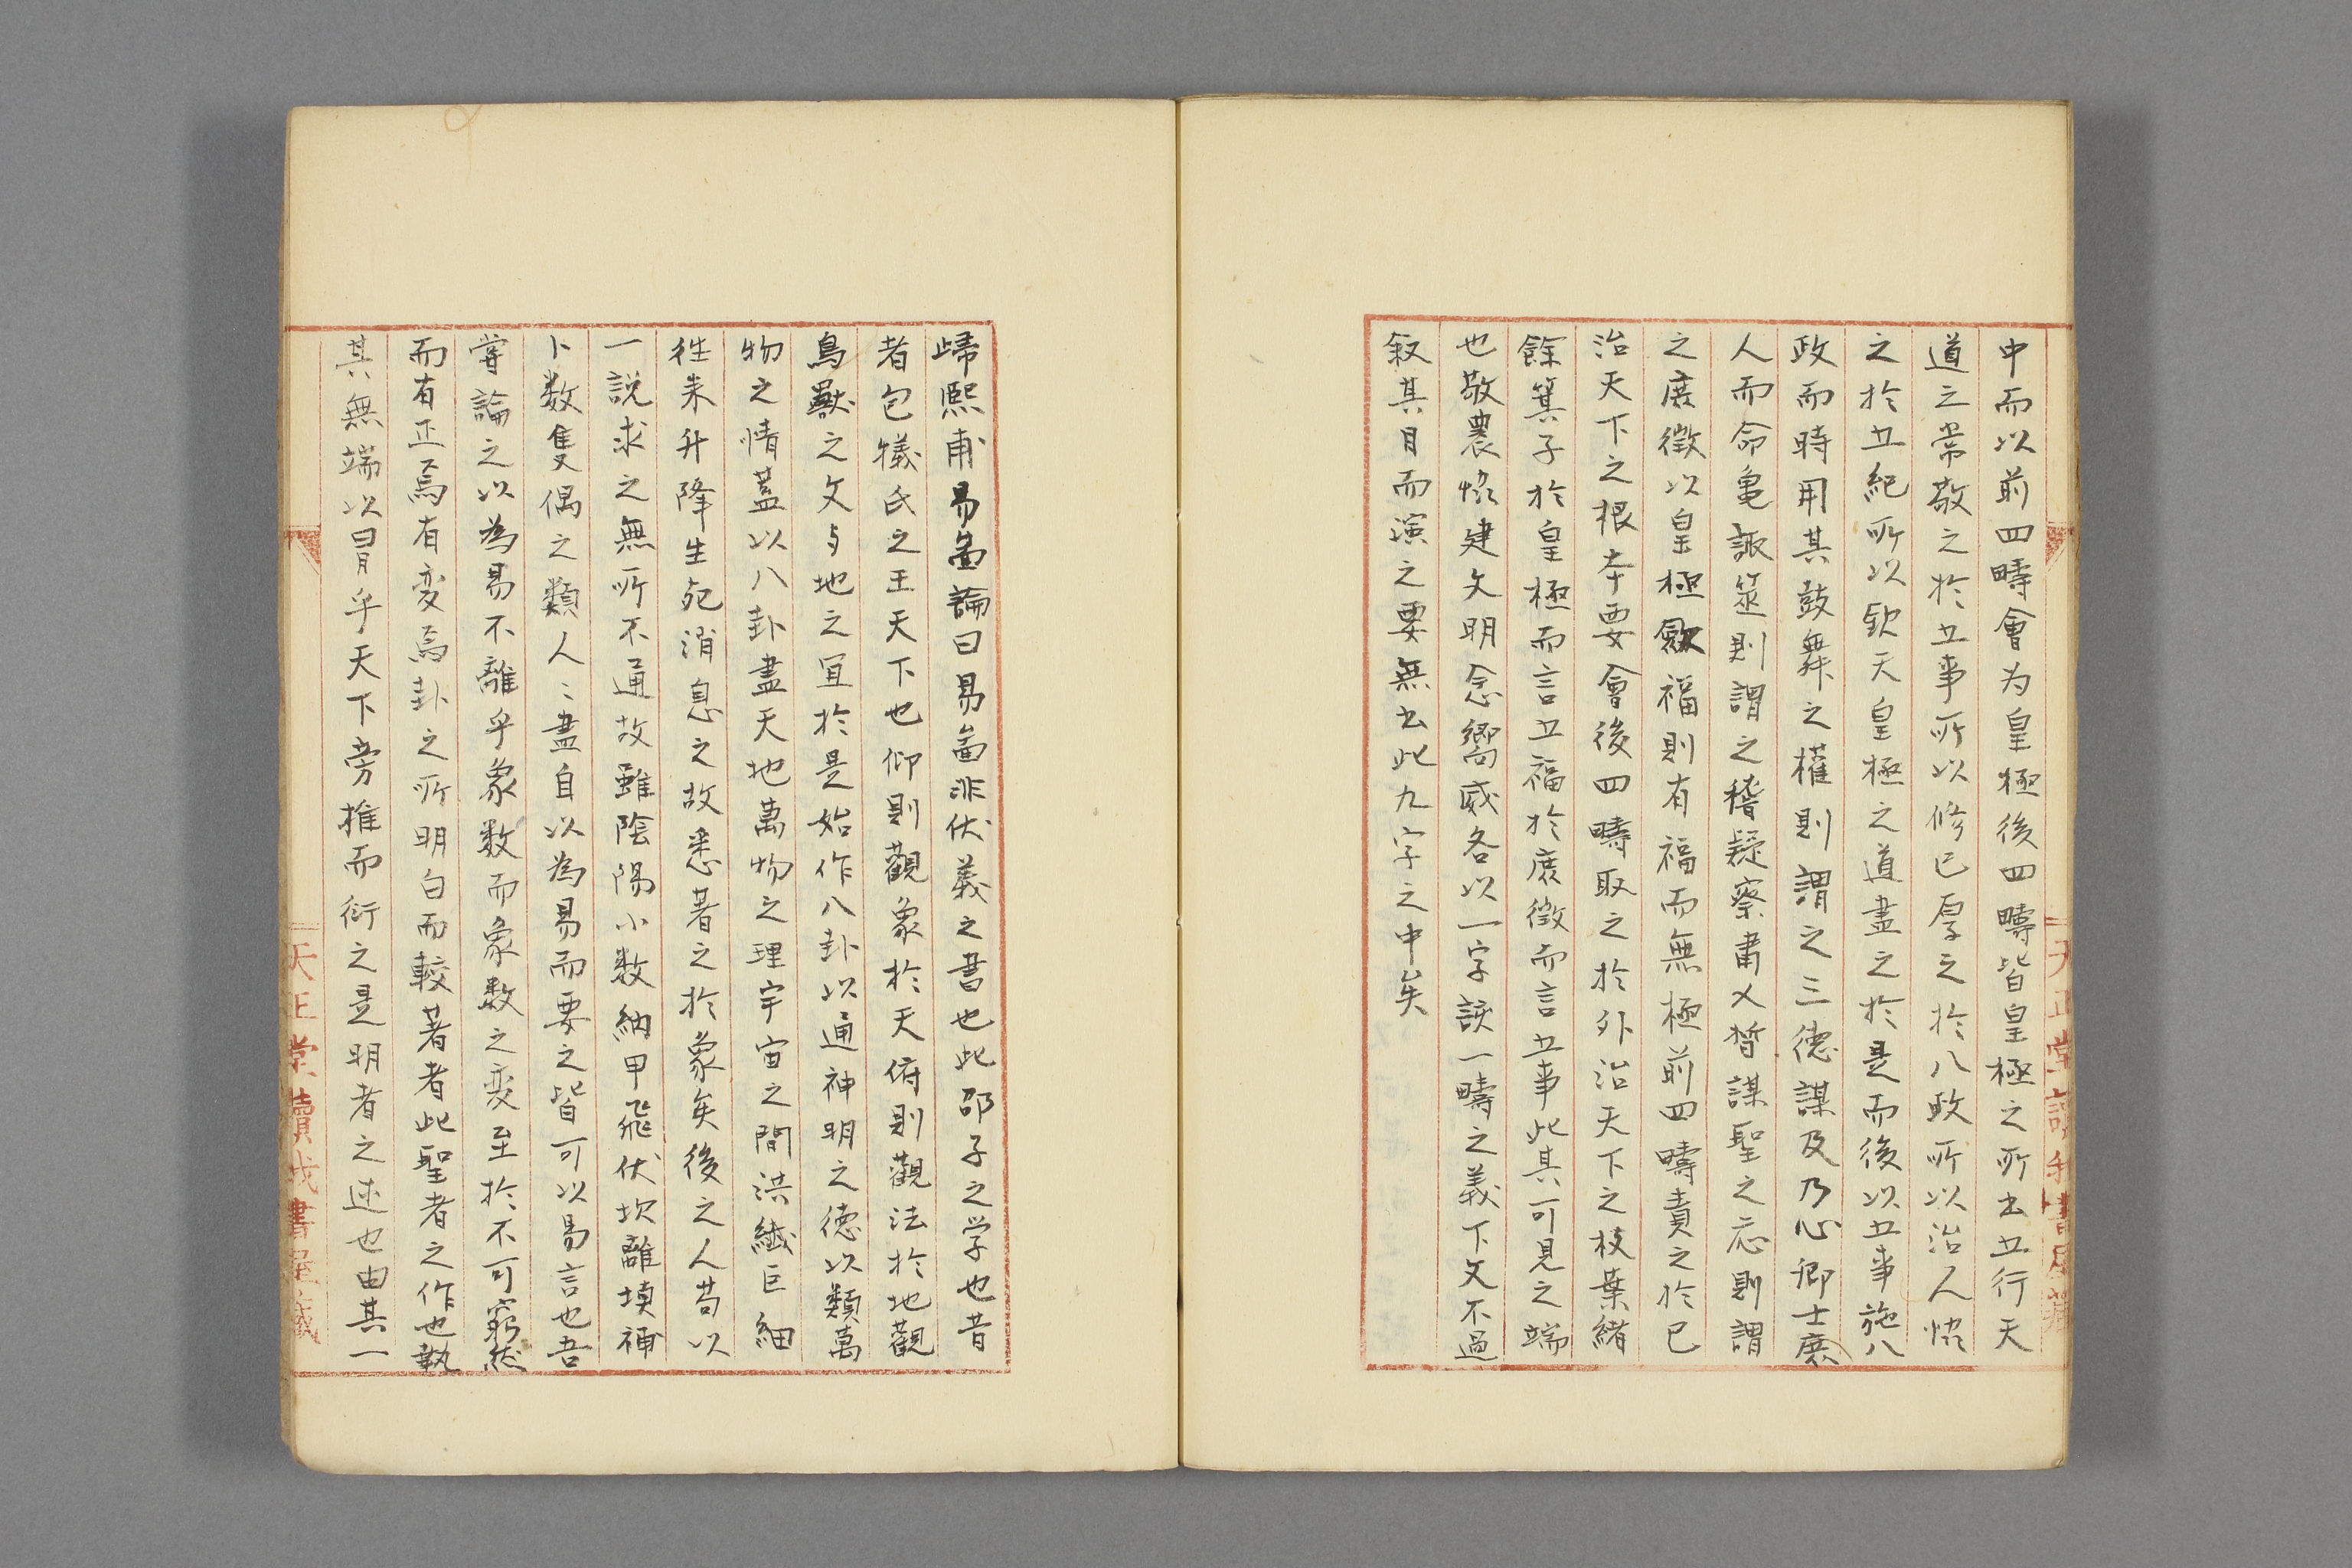 中而以前四疇會为皇極後四疇皆皇極之所出五行天
道之常敬之於五事所以修己厚之於八政所以治人恊
之於五紀所以欽天皇極之道盡之於是而後以五事施八
政而時用其鼓舞之權則謂之三徳謀及乃心卿士庻
人而命亀諏筮則謂之稽疑察肅乂晢謀聖之応則謂
之庻徴以皇極歛福則有福而無極前四疇責之於己
治天下之根本要會後四疇取之於外治天下之枝葉緒
餘箕子於皇極而言五福於庻徴而言五事此其可見之端
也敬農恊建乂明念嚮威各以一字該一疇之義下文不過
叙其目而演之要無出此九字之中矣
歸熙甫易啚論曰易啚非伏義之書也此邵子之学也昔
者包犠氏之王天下也仰則觀象於天俯則觀法於地觀
鳥獸之文与地之宜於是始作八卦以通神明之徳以類萬
物之情蓋以八卦盡天地萬物之理宇宙之間洪纎巨細
徃来升降生死消息之故悉著之於象矣後之人苟以
一説求之無所不通故雖陰陽小数納甲飛伏坎離填補
卜数隻偶之類人〻盡自以為易而要之皆可以易言也吾
甞論之以為易不離乎象数而象数之変至於不可窮然
而有正焉有変焉卦之所明白而較著者此聖者之作也執
其無端以冐乎天下旁推而衍之是明者之述也由其一
天正堂讀我書屋藏